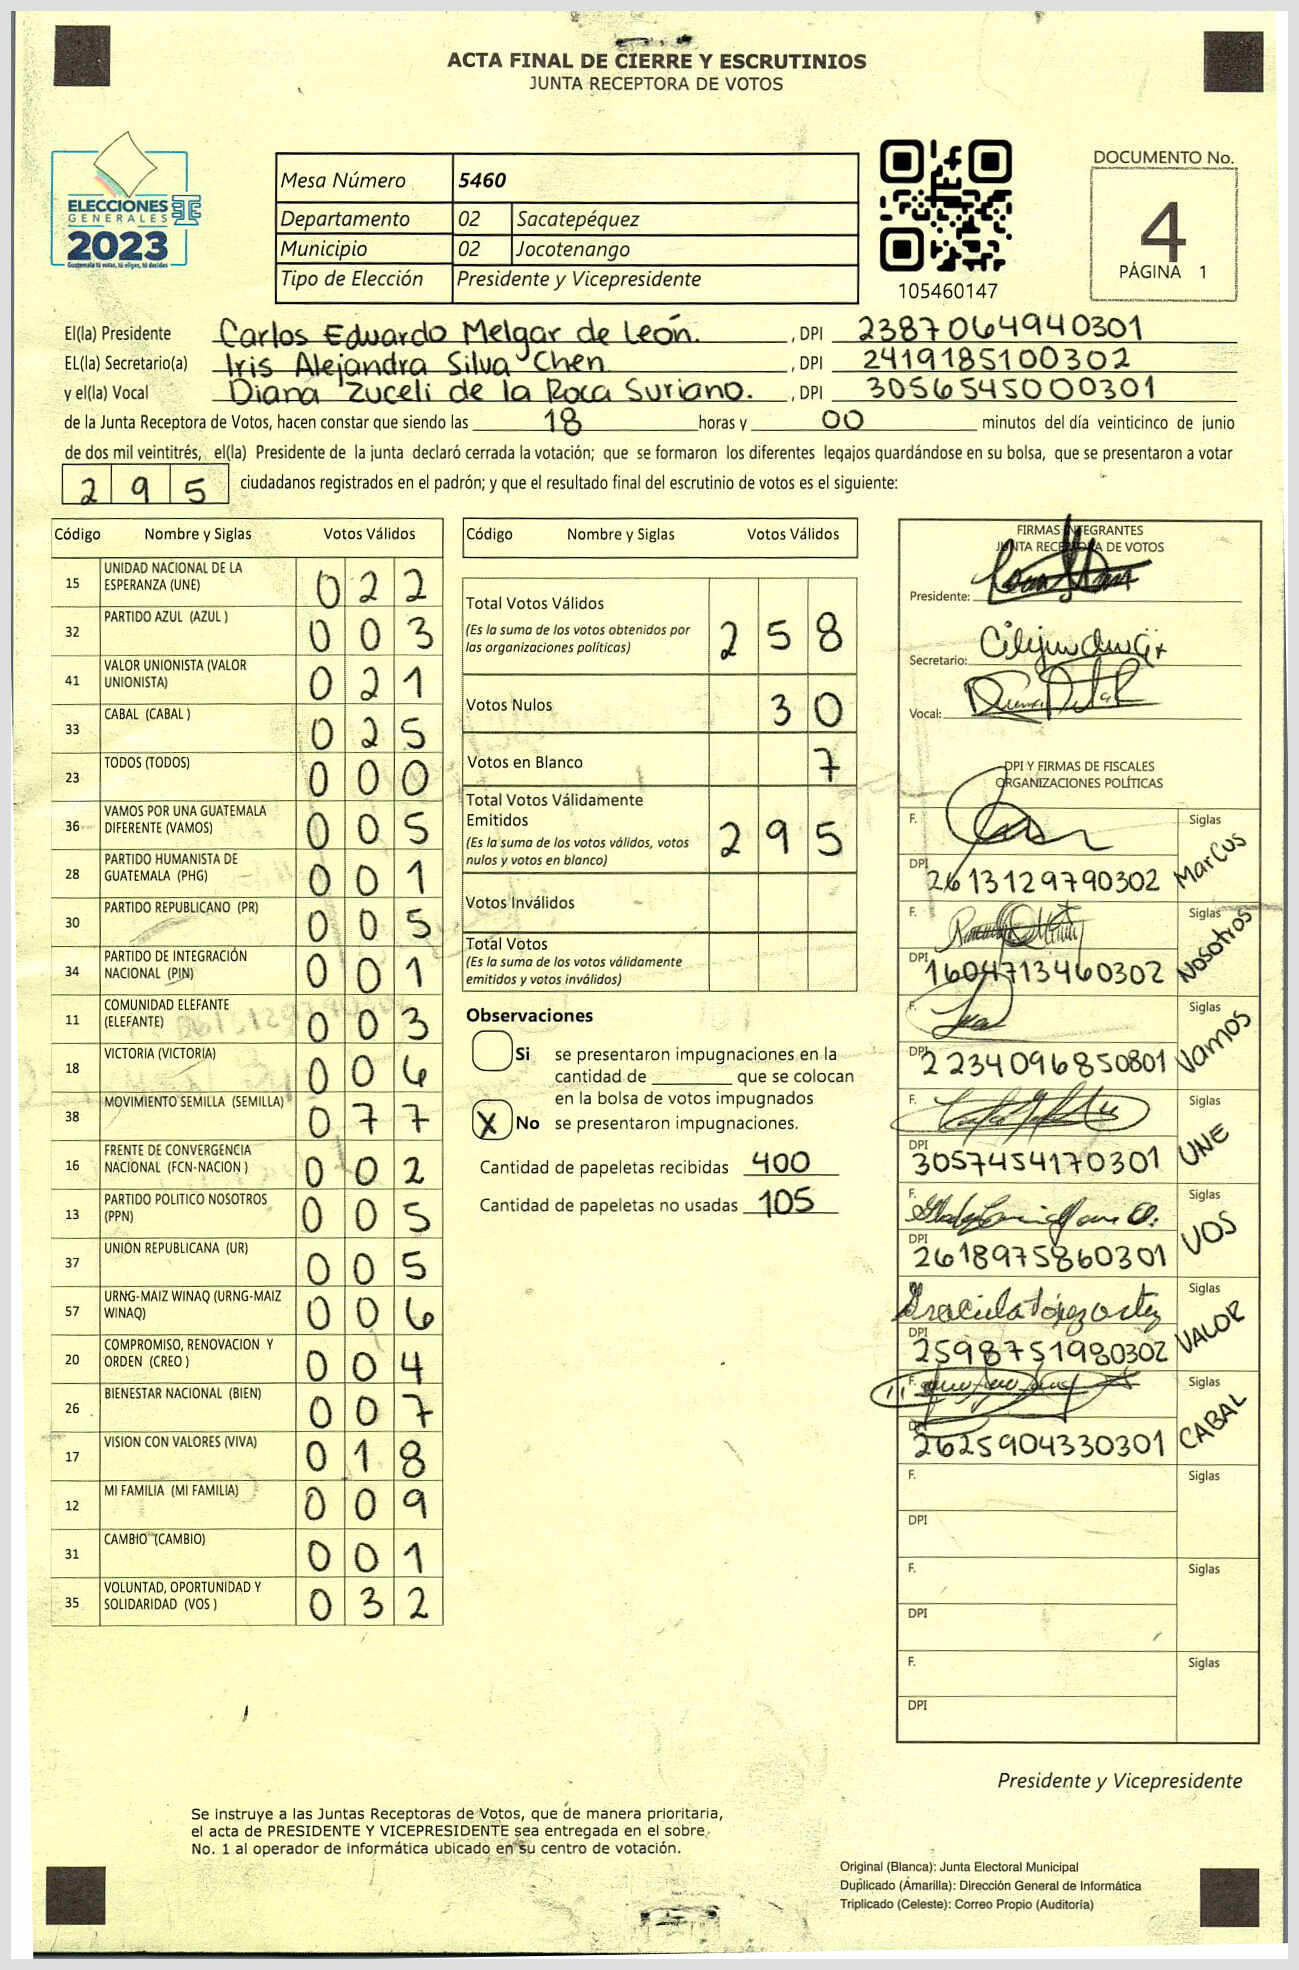 ACTA FINAL DE CIERRE Y ESCRUTINIOS
JUNTA RECEPTORA DE VOTOS
ELECCIONES
GENERALES
2023
Guatemala tú votas, tú eliges, tú decides
Mesa Número 5460
Departamento 02 Sacatepéquez
Municipio 02 Jocotenango
Tipo de Elección Presidente y Vicepresidente
105460147
DOCUMENTO No.
4
PÁGINA 1
El(la) Presidente Carlos Eduardo Melgar de León. , DPI 2387064940301
EL(la) Secretario(a) Iris Alejandra Silva Chen , DPI 2419185100302
y el(la) Vocal Diana Zuceli de la Roca Suriano. , DPI 3056545000301
de la Junta Receptora de Votos, hacen constar que siendo las 18 horas y 00 minutos del día veinticinco de junio
de dos mil veintitrés, el(la) Presidente de la junta declaró cerrada la votación; que se formaron los diferentes legajos guardándose en su bolsa, que se presentaron a votar
295 ciudadanos registrados en el padrón; y que el resultado final del escrutinio de votos es el siguiente:
Código Nombre y Siglas Votos Válidos
15 UNIDAD NACIONAL DE LA ESPERANZA (UNE) 022
32 PARTIDO AZUL (AZUL ) 003
41 VALOR UNIONISTA (VALOR UNIONISTA) 021
33 CABAL (CABAL ) 025
23 TODOS (TODOS) 000
36 VAMOS POR UNA GUATEMALA DIFERENTE (VAMOS) 005
28 PARTIDO HUMANISTA DE GUATEMALA (PHG) 001
30 PARTIDO REPUBLICANO (PR) 005
34 PARTIDO DE INTEGRACIÓN NACIONAL (PIN) 001
11 COMUNIDAD ELEFANTE (ELEFANTE) 003
18 VICTORIA (VICTORIA) 006
38 MOVIMIENTO SEMILLA (SEMILLA) 077
16 FRENTE DE CONVERGENCIA NACIONAL (FCN-NACION ) 002
13 PARTIDO POLITICO NOSOTROS (PPN) 005
37 UNIÓN REPUBLICANA (UR) 005
57 URNG-MAIZ WINAQ (URNG-MAIZ WINAQ) 006
20 COMPROMISO, RENOVACION Y ORDEN (CREO ) 004
26 BIENESTAR NACIONAL (BIEN) 007
17 VISION CON VALORES (VIVA) 018
12 MI FAMILIA (MI FAMILIA) 009
31 CAMBIO (CAMBIO) 001
35 VOLUNTAD, OPORTUNIDAD Y SOLIDARIDAD (VOS ) 032
Código Nombre y Siglas Votos Válidos
Total Votos Válidos 258
(Es la suma de los votos obtenidos por
las organizaciones políticas)
Votos Nulos 30
Votos en Blanco 7
Total Votos Válidamente
Emitidos 295
(Es la suma de los votos válidos, votos
nulos y votos en blanco)
Votos Inválidos
Total Votos
(Es la suma de los votos válidamente
emitidos y votos inválidos)
Observaciones
Si se presentaron impugnaciones en la
cantidad de ________ que se colocan
en la bolsa de votos impugnados
X No se presentaron impugnaciones.
Cantidad de papeletas recibidas 400
Cantidad de papeletas no usadas 105
FIRMAS INTEGRANTES
JUNTA RECEPTORA DE VOTOS
Presidente:
Secretario:
Vocal:
DPI Y FIRMAS DE FISCALES
ORGANIZACIONES POLÍTICAS
F. Siglas
DPI 2613129790302 MarCus
F. Siglas
DPI 1604713460302 Nosotros
F. Siglas
DPI 2234096850801 Vamos
F. Siglas
DPI 3057454170301 UNE
F. Siglas
DPI 2618975860301 VOS
Graciela López Ortiz Siglas
DPI 2598751980302 VALOR
F. Siglas
DPI 2625904330301 CABAL
F. Siglas
DPI
F. Siglas
DPI
F. Siglas
DPI
Presidente y Vicepresidente
Se instruye a las Juntas Receptoras de Votos, que de manera prioritaria,
el acta de PRESIDENTE Y VICEPRESIDENTE sea entregada en el sobre
No. 1 al operador de informática ubicado en su centro de votación.
Original (Blanca): Junta Electoral Municipal
Duplicado (Amarilla): Dirección General de Informática
Triplicado (Celeste): Correo Propio (Auditoría)